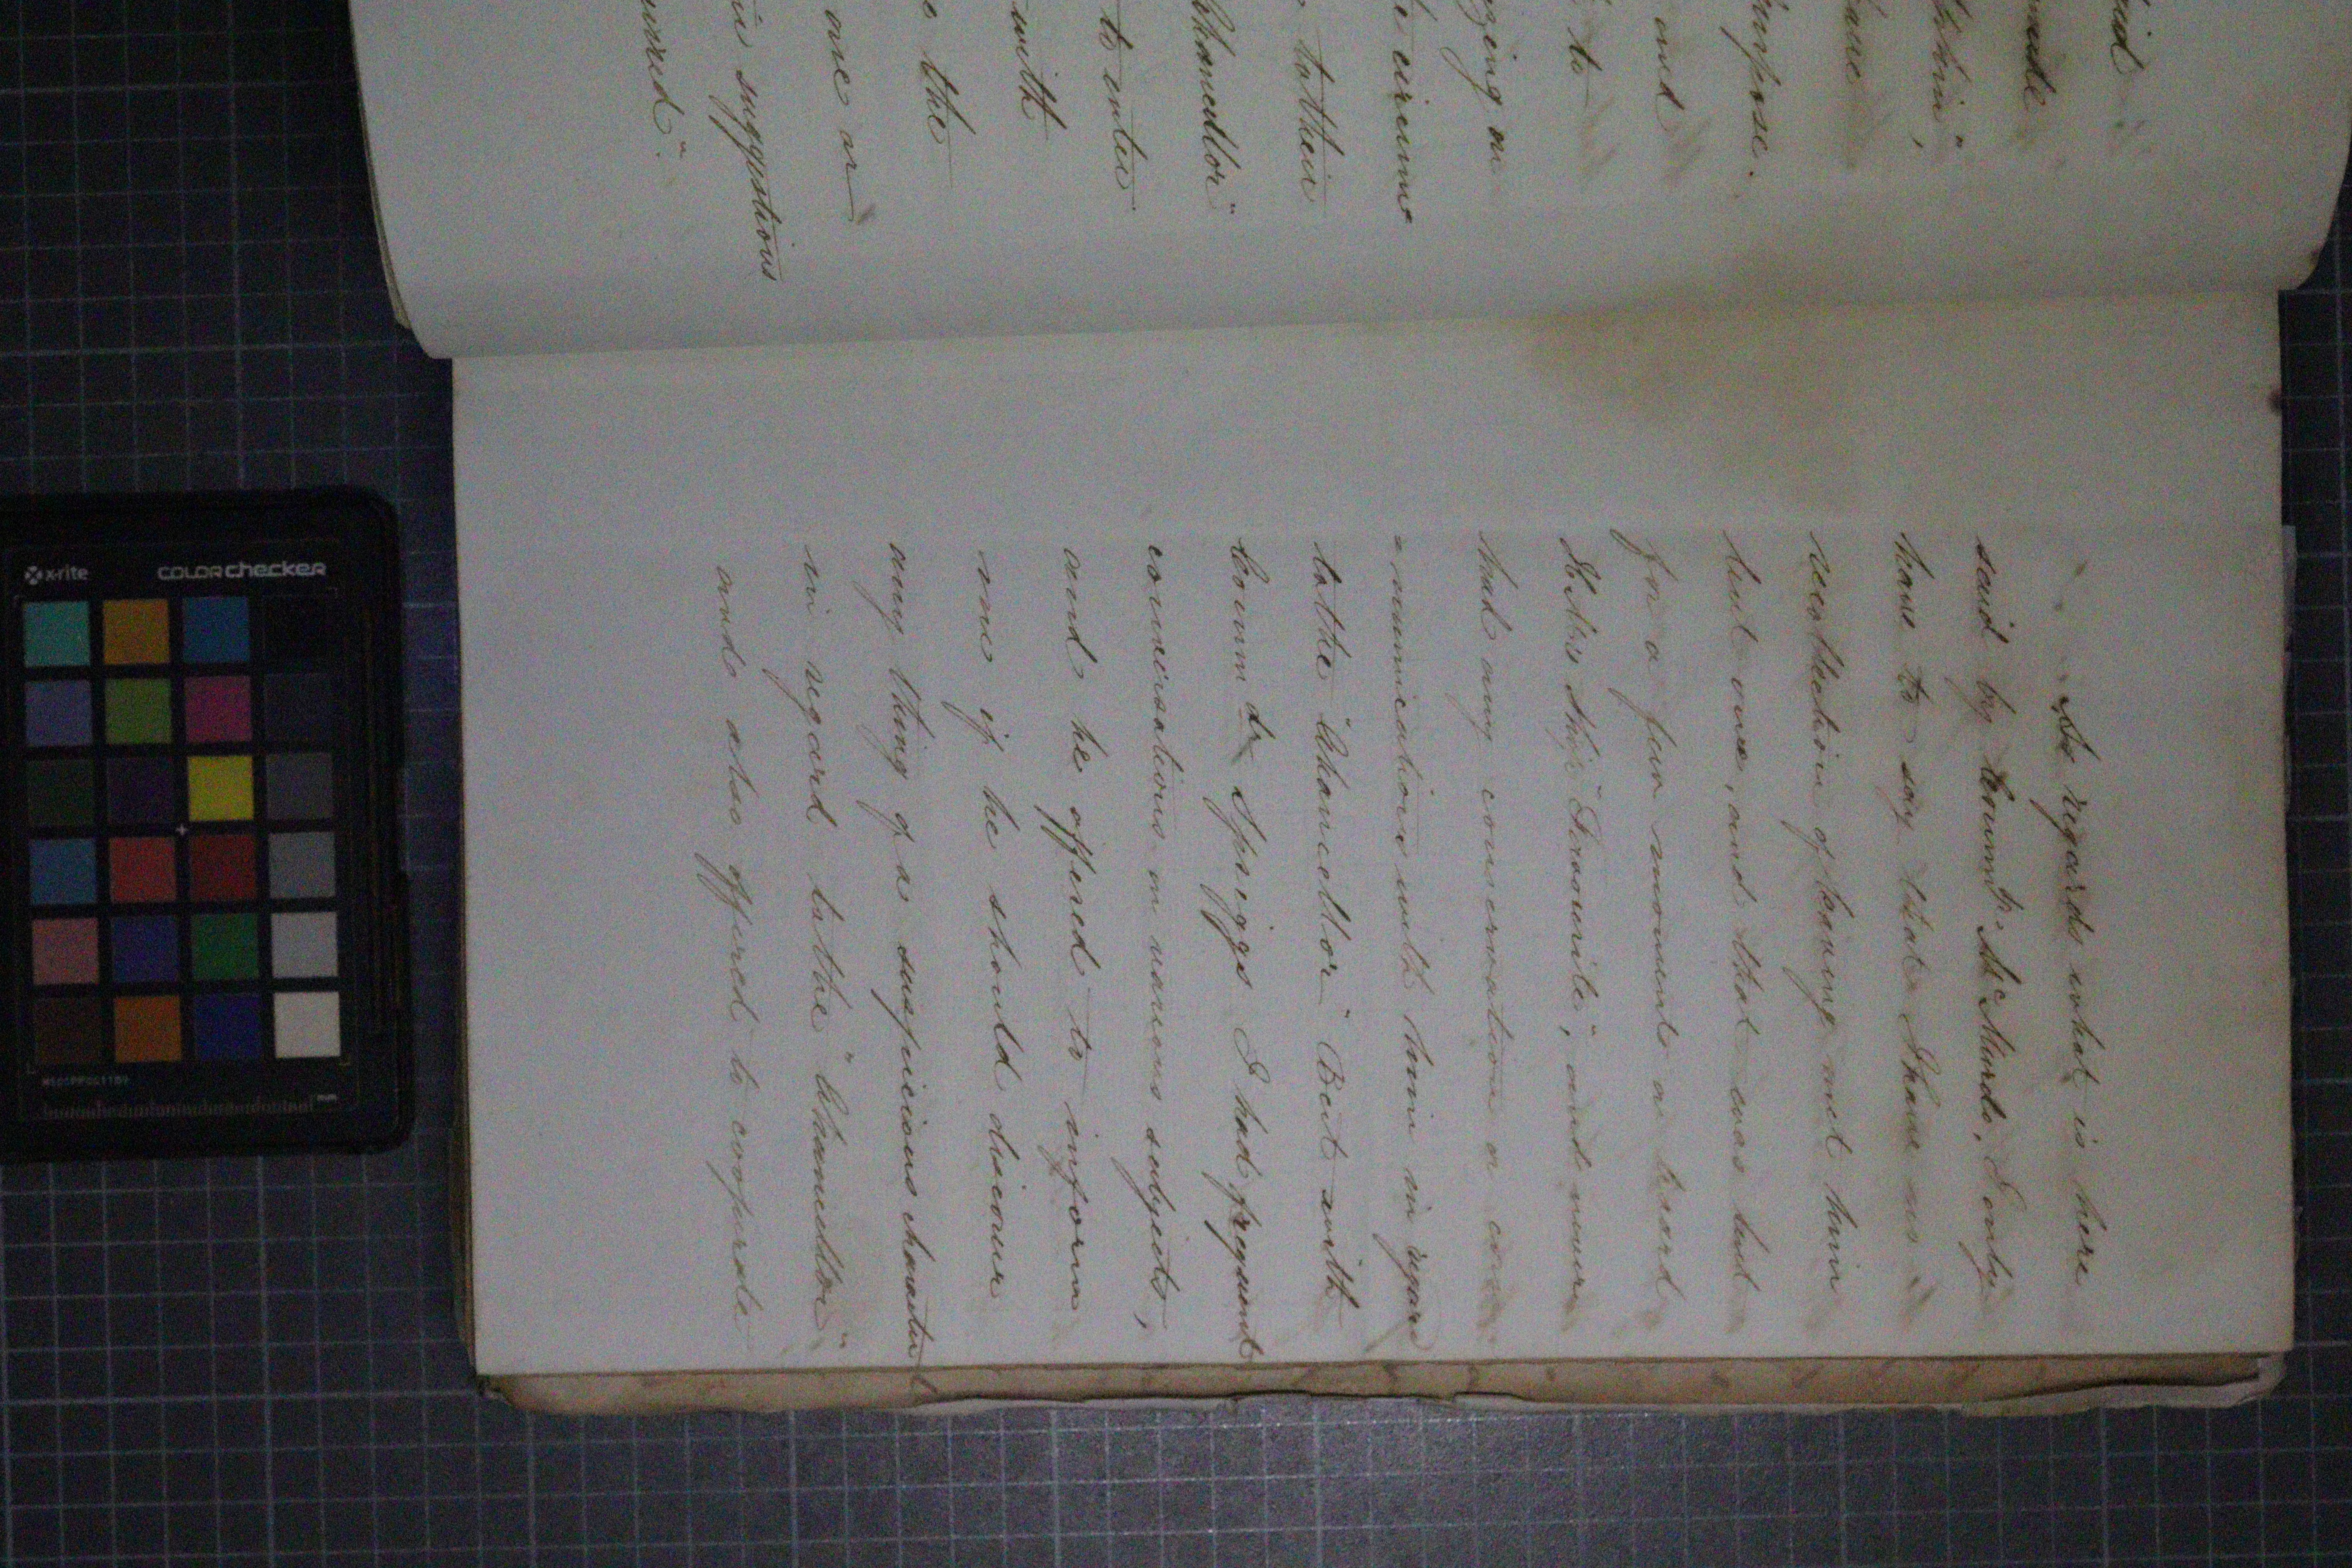 aid
made
thin",
have
purpose.
and
to
zing on
e circums
to their
Chancellor"
to enter
with
e the
one or
in suggestions
urred."
As regards what is here
said by Comm^dr McMurdo, I only
have to say that I have no
recollection of having met him
but once, and that was but
for a few moments on board
H.M's Ship "Favourite", and never
had any conversation or com
=munication with him in regard
to the "Chancellor" But with
Comm^dr Spriggs I had frequent
conversations on various subjects,
and he offered to inform
me if he should discover
any thing of a suspicious character
in regard to the "Chancellor"
and also offered to cooperate
x-rite
COLORchecker
mm